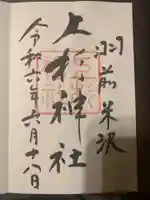 羽前米沢
上杉神社
令和六年六月十八日